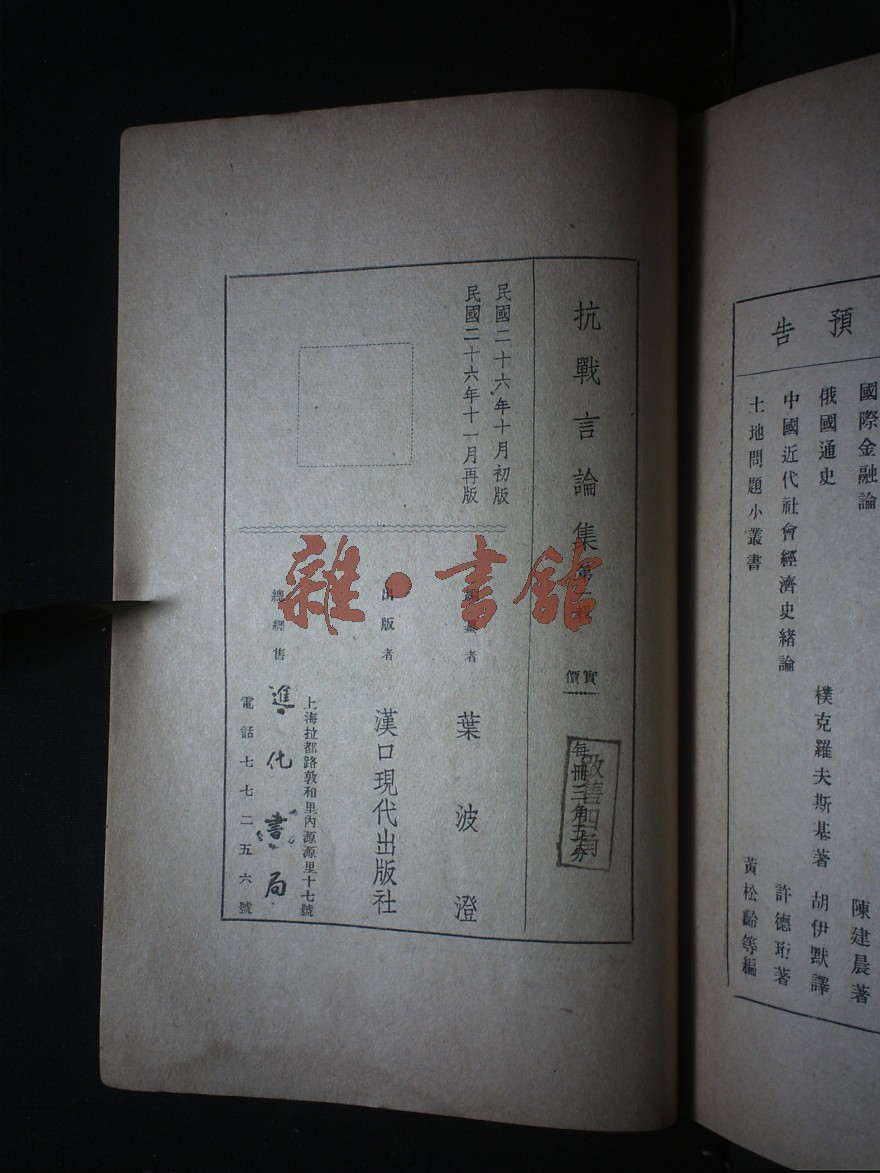 抗戰言論集
實價
每冊三角五分
改售四角
民國二十六年十月初版
民國二十六年十一月再版
者
葉波澄
出版者
漢口現代出版社
總經售
上海拉都路敦和里內源源里十七號
進化書局
電話七七二五六號
雜·書館
預告
國際金融論
陳建晨著
俄國通史
樸克羅夫斯基著
胡伊默譯
中國近代社會經濟史緒論
許德珩著
土地問題小叢書
黃松齡等編